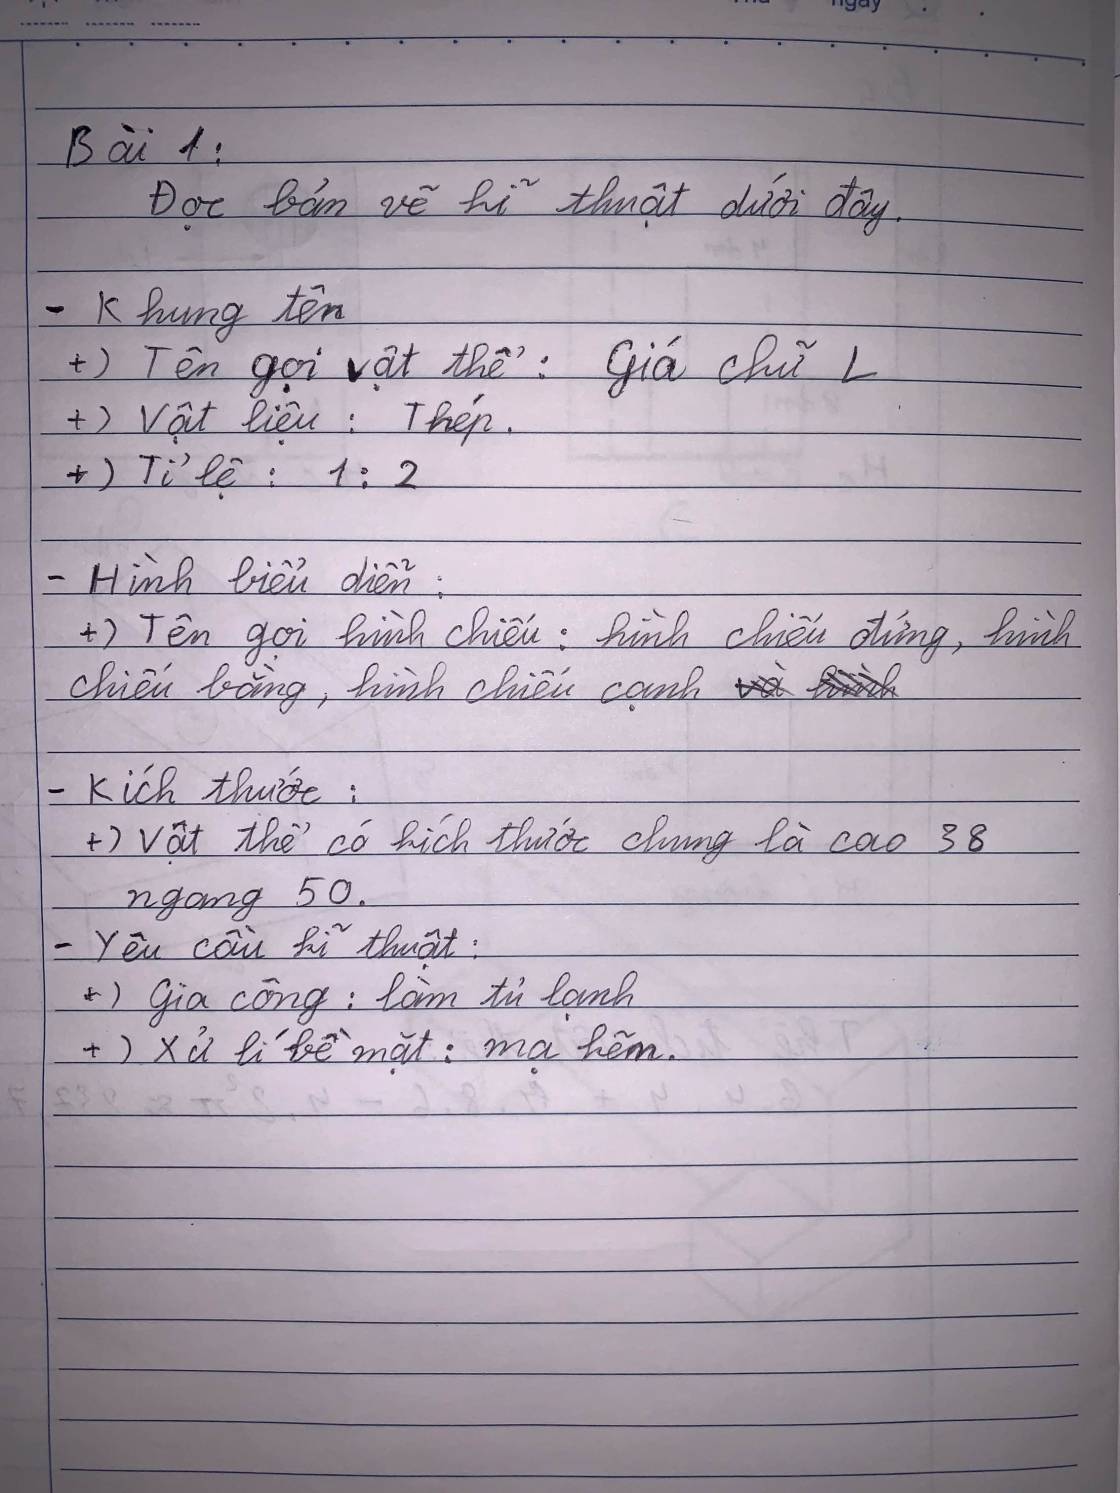 ngày
Bài 1:
Đọc bản vẽ kĩ thuật dưới đây.
- Khung tên
+) Tên gọi vật thể: Giá chữ L
+) Vật liệu: Thép.
+) Tỉ lệ: 1:2
- Hình biểu diễn:
+) Tên gọi hình chiếu: hình chiếu đứng, hình
chiếu bằng, hình chiếu cạnh và hình
- Kích thước:
+) Vật thể có kích thước chung là cao 38
ngang 50.
- Yêu cầu kĩ thuật:
+) Gia công: làm tủ lạnh
+) Xử lí bề mặt: mạ kẽm.